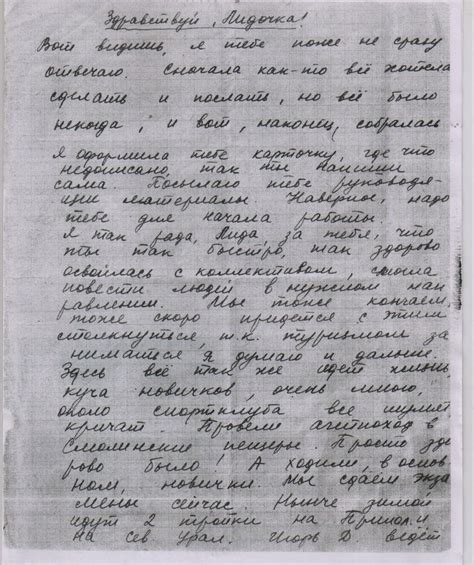 Здравствуй, Лидочка!
Вот видишь, я тебе тоже не сразу
отвечаю. Сначала как-то всё хотела
сделать и послать, но всё было
некогда, и вот, наконец, собралась
Я оформила тебе карточку, где что
недописано, так ты напиши
сама. Посылаю тебе руководя-
щии материалы. Наверное, надо
тебе для начала работы.
Я так рада, Лида за тебя, что
ты так быстро, так здорово
освоилась с коллективом, смогла
повести людей в нужном нап
равлении. Мы тоже кончаем,
тоже скоро придется с этим
столкнуться, т.к. туризмом за
ниматься я думаю и дальше.
Здесь всё так же идет жизнь,
куча новичков, очень много,
около спортклуба все шумят
кричат. Провели агитпоход в
Смолинские пещеры. Просто здо
рово было! А ходили, в основ
ном, новички. Мы сдаем экза
мены сейчас. Нынче зимой
идут 2 тройки на Припол. и
на сев. Урал. Игорь Д. ведёт